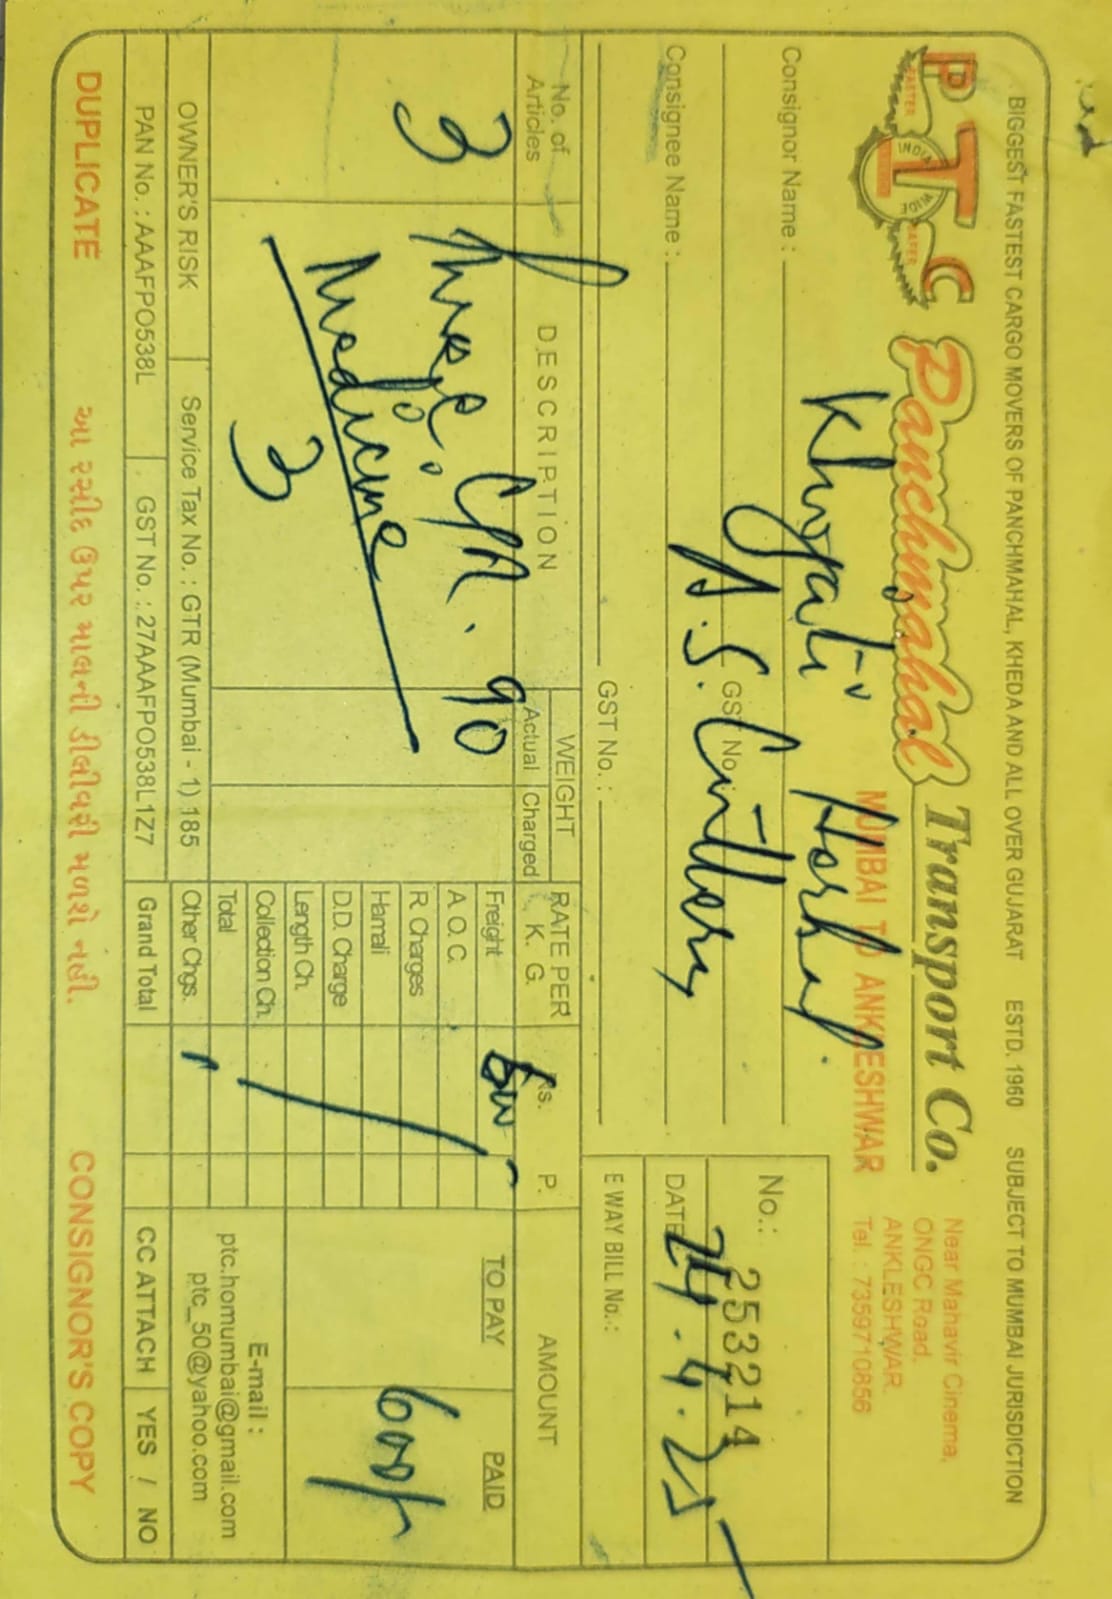 BIGGEST FASTEST CARGO MOVERS OF PANCHMAHAL, KHEDA AND ALL OVER GUJARAT ESTD. 1960 SUBJECT TO MUMBAI JURISDICTION
PTC
FASTER INDIA WIDE SAFER
Panchmahal Transport Co.
MUMBAI TO ANKLESHWAR
Near Mahavir Cinema,
ONGC Road,
ANKLESHWAR.
Tel. : 7359710856
Consignor Name : Khyati Herbal.
GST No.
No.: 253214
Consignee Name : A.S.
DATE 24.4.25
GST No. :
E WAY BILL No.:
No. of Articles
DESCRIPTION
WEIGHT
Actual Charged
RATE PER K. G.
Rs. P.
AMOUNT
3
90
Medicine
3
Freight
A.O.C.
R. Charges
Hamali
D.D. Charge
Length Ch.
Collection Ch.
Total
Other Chgs.
Grand Total
TO PAY
PAID
600/-
OWNER'S RISK
Service Tax No. : GTR (Mumbai - 1) 185
E-mail :
ptc.homumbai@gmail.com
ptc_50@yahoo.com
PAN No. : AAAFPO538L
GST No. : 27AAAFPO538L1Z7
CC ATTACH YES / NO
DUPLICATE
આ રસીદ ઉપર માલની ડીલીવરી મળશે નહી.
CONSIGNOR'S COPY